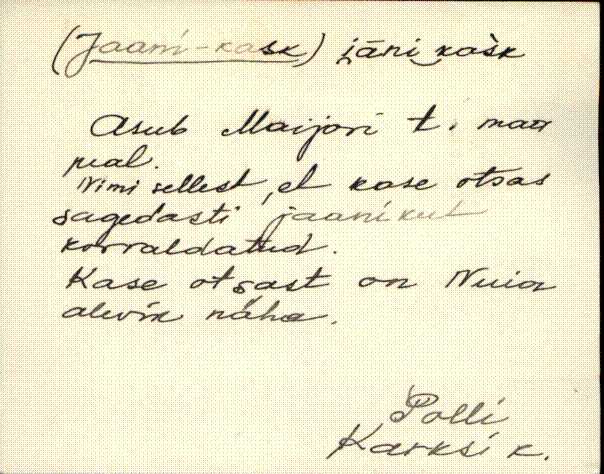 (Jaani-kask) jāni kašk
Asub Maijori t. maa
peal.
Nimi sellest, et kase otsas
sagedasti jaanikut
korraldatud.
Kase otsast on Nuia
alevik näha.
Polli
Karksi k.